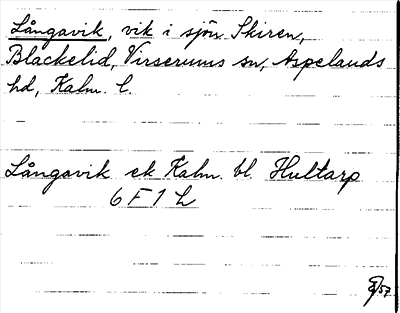 Långavik, vik i sjön Skiren,
Blackelid, Virserums sn, Aspelands
hd, Kalm. l.
Långavik ek Kalm. bl. Hultarp
6 F 1 h
/57